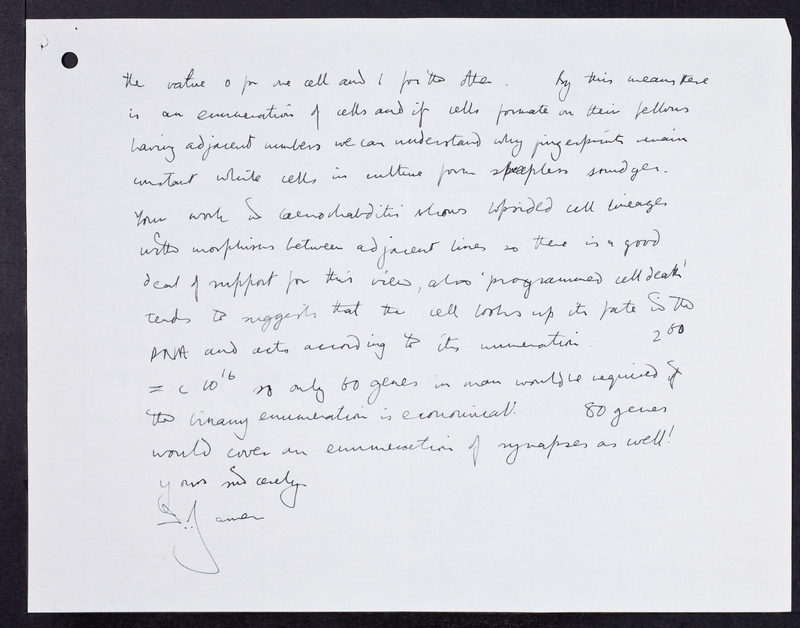 the value 0 for one cell and 1 for the other. By this means there
is an enumeration of cells and if cells formate on their fellows
having adjacent numbers we can understand why fingerprints remain
constant while cells in culture form shapeless smudges.
Your work in caenorhabditis shows lopsided cell lineages
with morphisms between adjacent lines so there is a good
deal of support for this view, also 'programmed cell death'
tends to suggests that the cell looks up its fate in the
DNA and acts according to its numeration. 2^60
= c 10^16 so only 60 genes in man would be required if
the binary enumeration is economical! 80 genes
would cover an enumeration of synapses as well!
yours sincerely
James